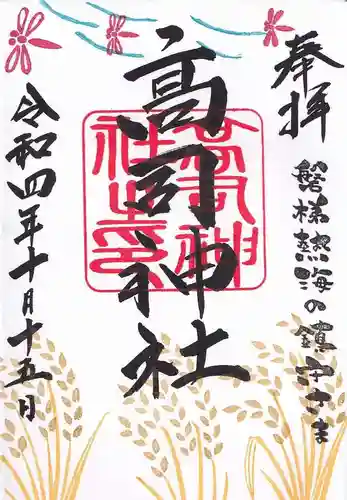 奉拝
磐梯熱海の鎮守さま
高司神社
高司神社之印
令和四年十月十五日